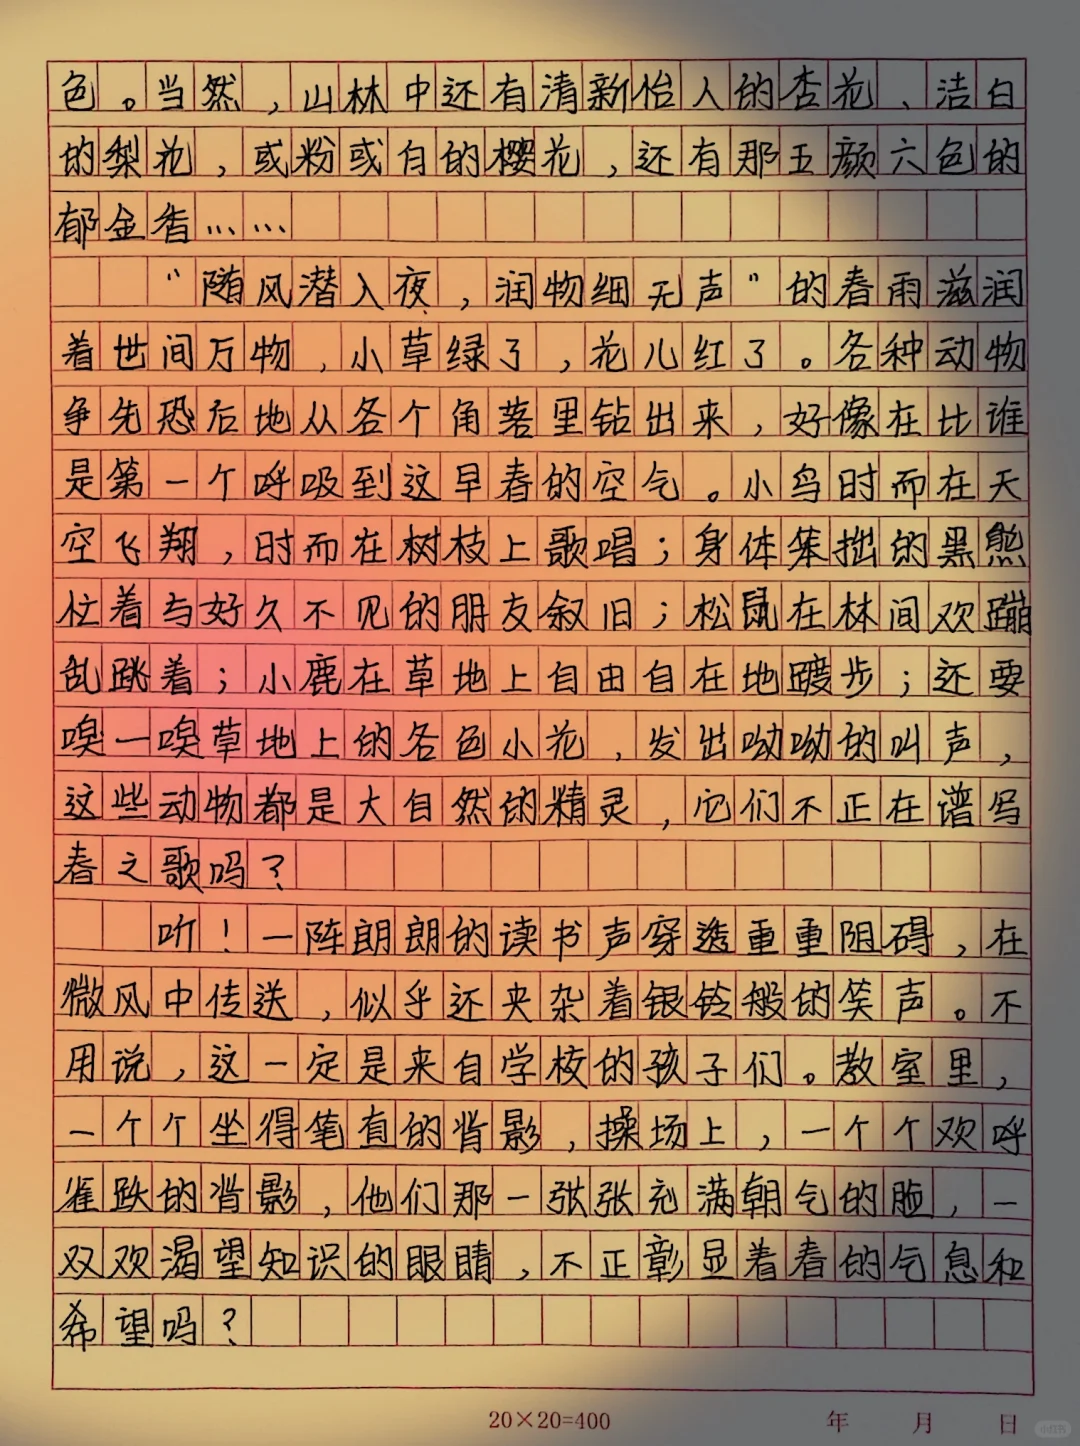 色。当然，山林中还有清新怡人的杏花、洁白
的梨花，或粉或白的樱花，还有那五颜六色的
郁金香……
“随风潜入夜，润物细无声”的春雨滋润
着世间万物，小草绿了，花儿红了。各种动物
争先恐后地从各个角落里钻出来，好像在比谁
是第一个呼吸到这早春的空气。小鸟时而在天
空飞翔，时而在树枝上歌唱；身体笨拙的黑熊
忙着与好久不见的朋友叙旧；松鼠在林间欢蹦
乱跳着；小鹿在草地上自由自在地踱步；还要
嗅一嗅草地上的各色小花，发出呦呦的叫声，
这些动物都是大自然的精灵，它们不正在谱写
春之歌吗？
听！一阵朗朗的读书声穿透重重阻碍，在
微风中传送，似乎还夹杂着银铃般的笑声。不
用说，这一定是来自学校的孩子们。教室里，
一个个坐得笔直的背影，操场上，一个个欢呼
雀跃的背影，他们那一张张充满朝气的脸，一
双双渴望知识的眼睛，不正彰显着春的气息和
希望吗？
20×20=400 年 月 日